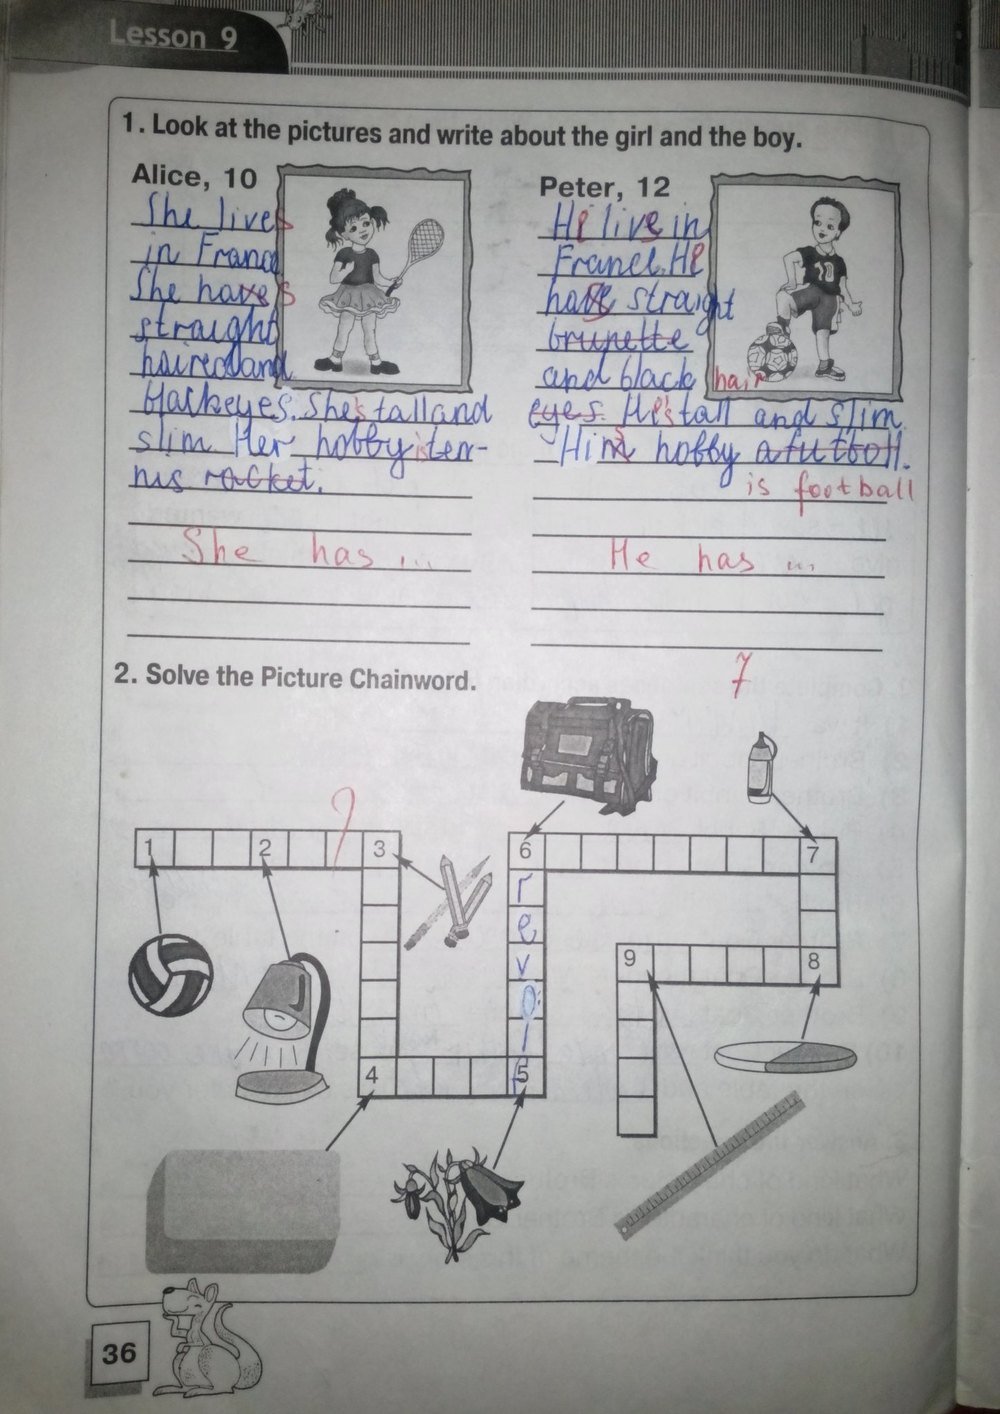 Lesson 9
1. Look at the pictures and write about the girl and the boy.
Alice, 10
She lives
in France
She haves
straight
haired and
black eyes. She's tall and
slim. Her hobby is ten-
nis racket.
She has ...
Peter, 12
10
He live in
France. He
have straight
brunette
and black hair
eyes. He's tall and slim.
His hobby a futboll.
is football
He has ...
2. Solve the Picture Chainword.
7
1 2 3
6 7
r
e
v
9 8
o
l
4 f5
36